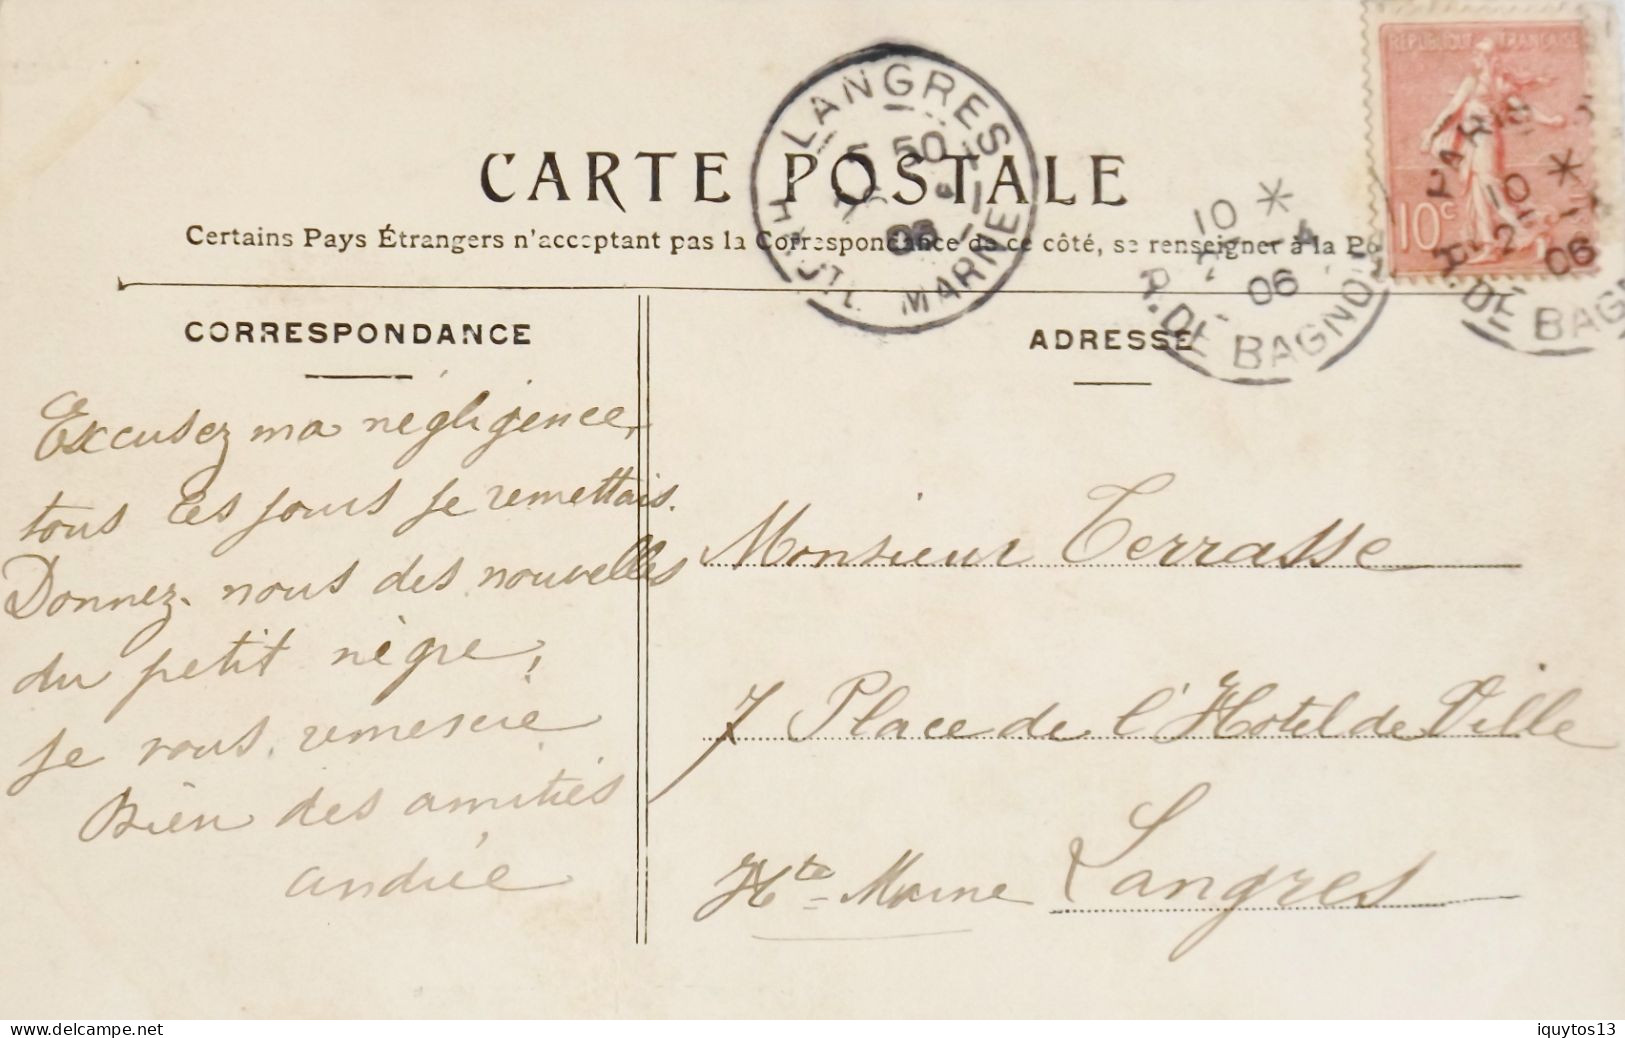 CARTE POSTALE
Certains Pays Étrangers n'acceptant pas la Correspondance de ce côté, se renseigner à la Po
LANGRES
50
06
HTE MARNE
10 *
4
06
R. DE BAGNO
REPUBLIQUE FRANÇAISE
10c
PARIS
10 *
06
R. DE BAGN
CORRESPONDANCE
ADRESSE
Excusez ma négligence,
tous les jours je remettais.
Donnez-nous des nouvelles
du petit nègre,
je vous remercie
Bien des amitiés
andrée
Monsieur Terrasse
7 Place de l'Hotel de Ville
Hte-Marne Langres
www.delcampe.net
iquytos13